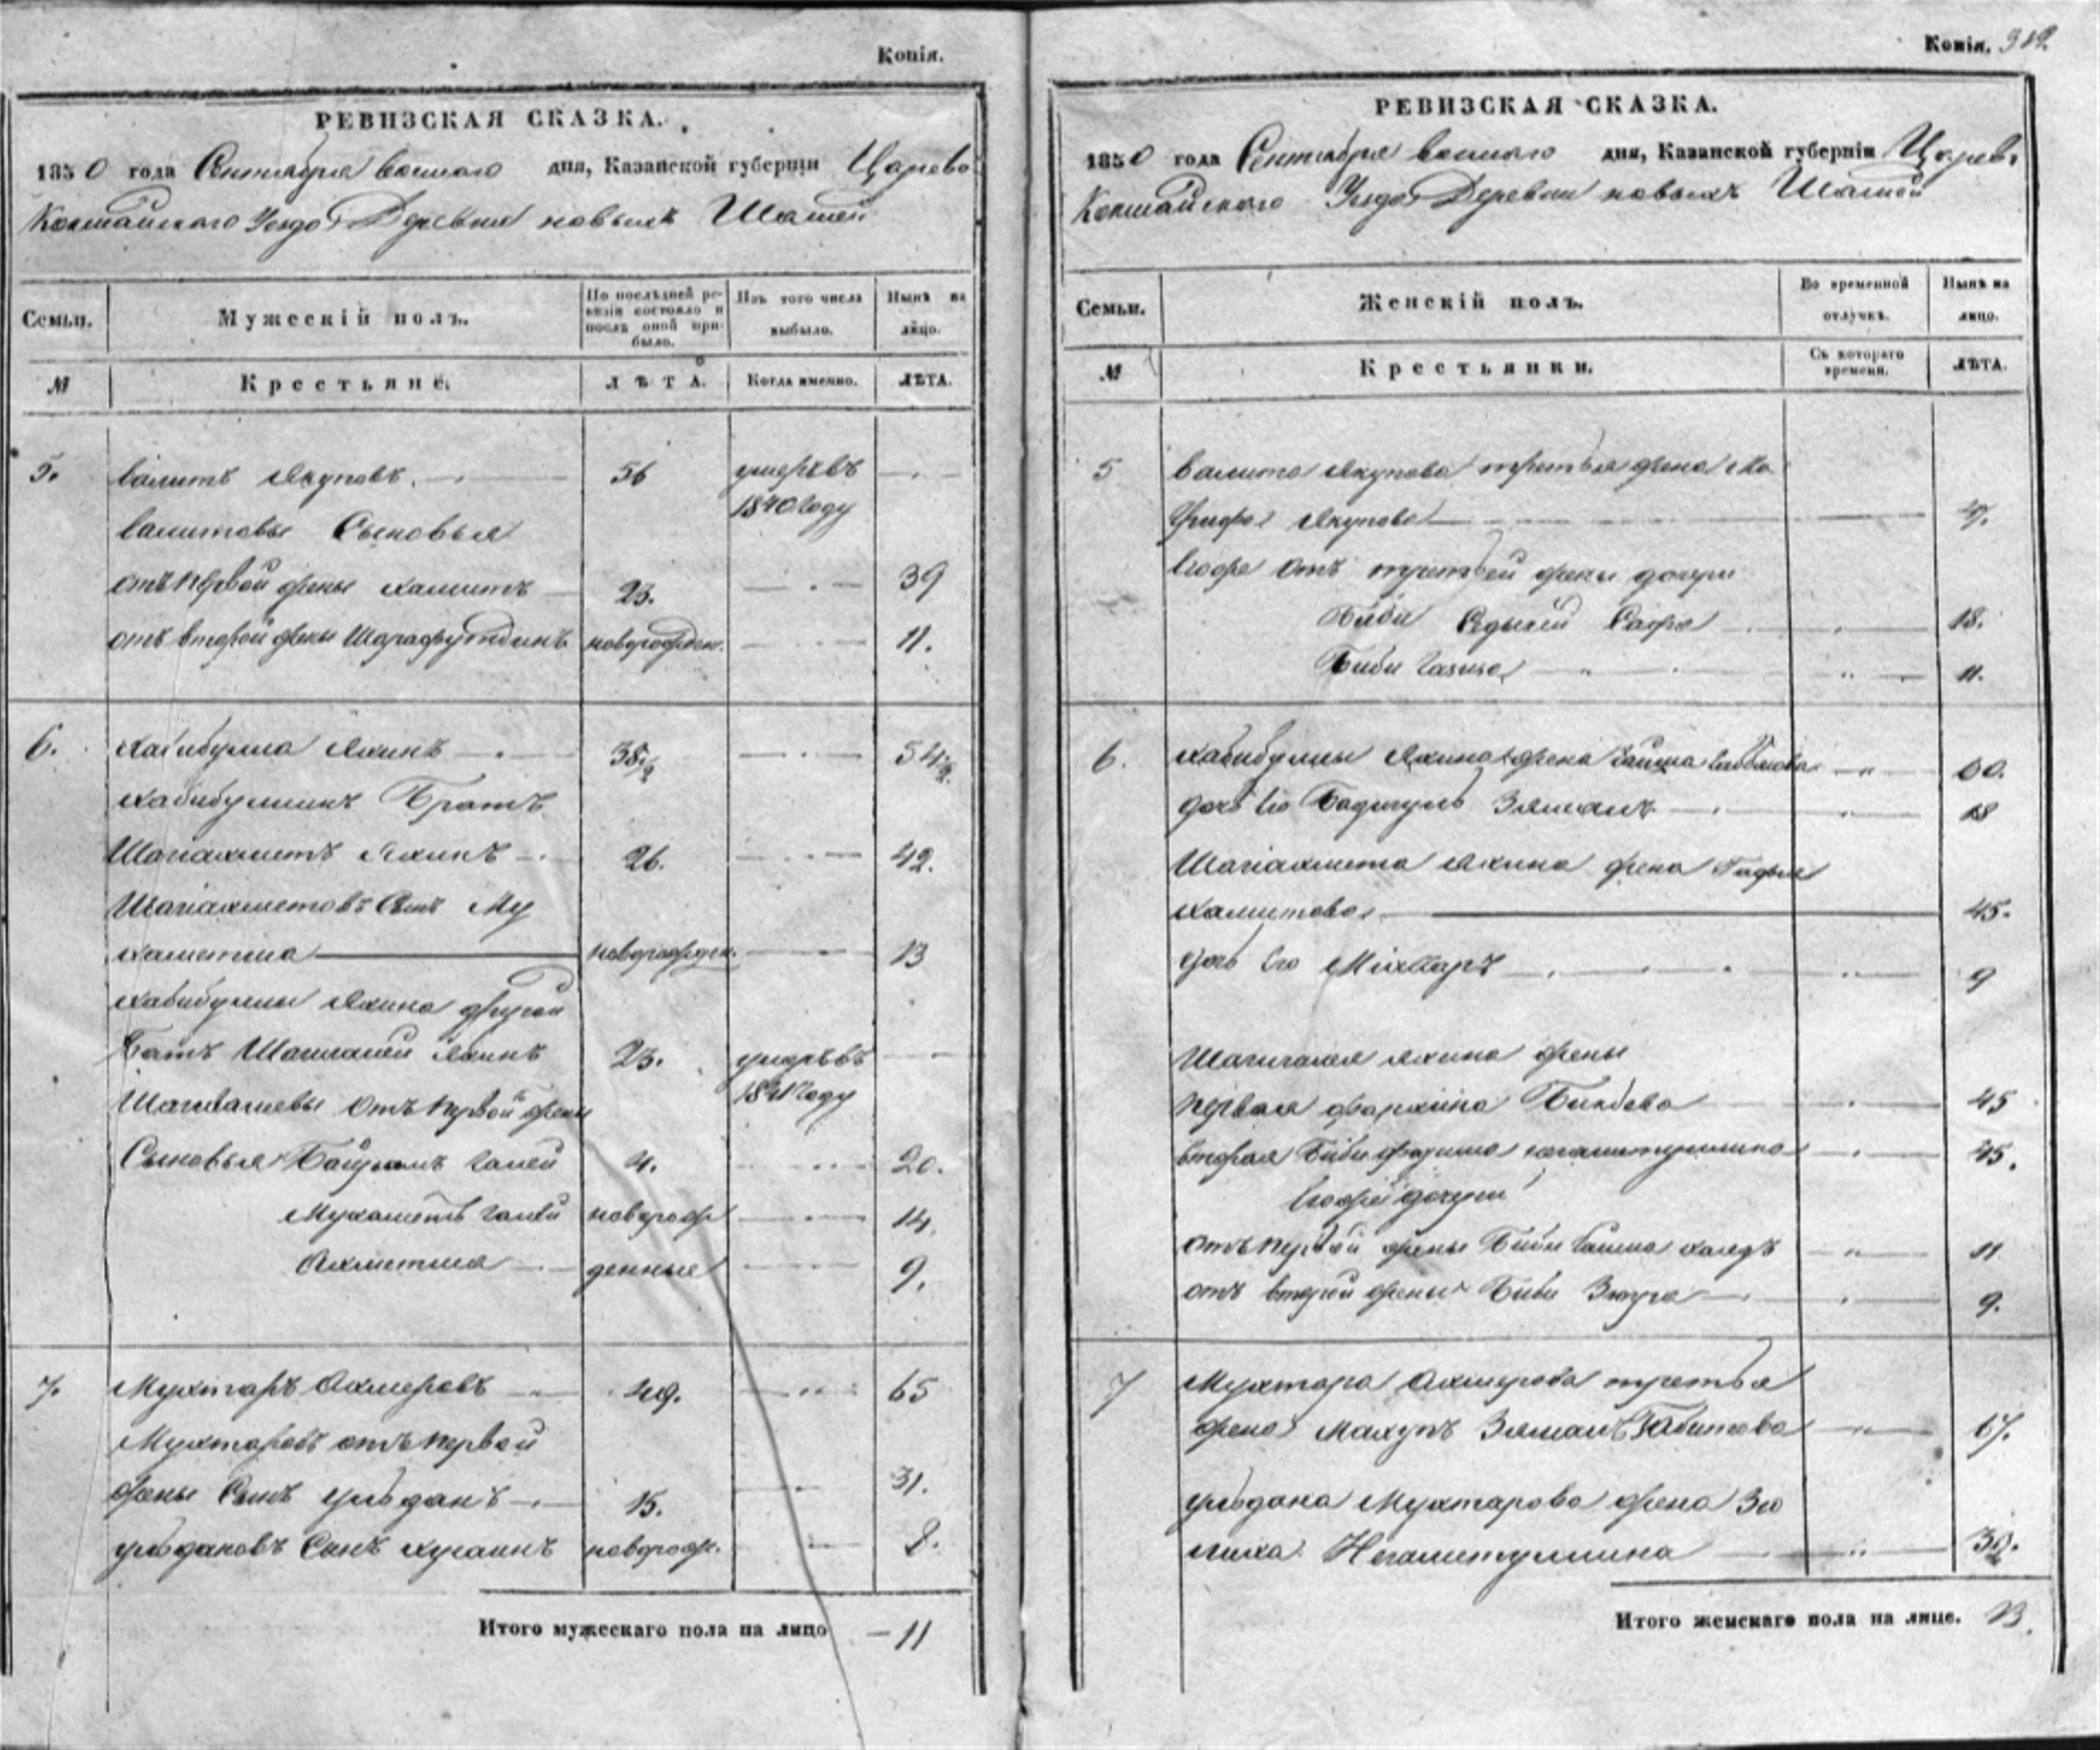 Копія.
РЕВИЗСКАЯ СКАЗКА.
1850 года Сентября восмаго дня, Казанской губерніи Царево
Кокшайскаго Уезда Деревни новыхъ Шашей
Семьи.
Мужескій полъ.
По послѣдней ре-
визіи состояло и
послѣ оной при-
было.
Изъ того числа
выбыло.
Нынѣ на
лицо.
№
Крестьяне.
ЛѢТА.
Когда именно.
ЛѢТА.
5. Валитъ Якуповъ 56 умеръ въ
1840 году
Валитовы Сыновья
отъ первой жены Халитъ 23. 39
отъ второй жены Шарафутдинъ новорожден. 11.
6. Хабибулла Яхинъ 38½ 54½
Хабибуллинъ Братъ
Шагіахметъ Яхинъ 26. 42.
Шагіахметовъ Сынъ Му
хаметша новорожден. 13
Хабибуллы Яхина другой
Братъ Шагигалей Яхинъ 23. умеръ въ
1841 году
Шагигалеевы отъ первой жены
Сыновья Байрамъ Галей 4. 20.
Мухаметъ Галей новорож 14.
Ахметша денные 9.
7. Мухтаръ Ахмеровъ 49. 65
Мухтаровъ отъ первой
жены Сынъ 15. 31.
Сынъ новорож. 8.
Итого мужескаго пола на лицо 11
Копія. 319.
РЕВИЗСКАЯ СКАЗКА.
1850 года Сентября восмаго дня, Казанской губерніи Царево
Кокшайскаго Уезда Деревни новыхъ Шашей
Семьи.
Женскій полъ.
Во временной
отлучкѣ.
Нынѣ на
лицо.
№
Крестьянки.
Съ котораго
времени.
ЛѢТА.
5 Валита Якупова третья жена
Якупова
Егоже отъ третьей жены дочери
Биби 18.
Биби Газиза 11.
6. Хабибуллы Яхина жена 60.
дочь его Бадигулъ Зямалъ 18
Шагіахмета Яхина жена
Халитова 45.
дочь его 9
Шагигалея Яхина жены
первая 45
вторая Биби 45.
Егоже дочери
отъ первой жены Биби 11
отъ второй жены Биби Зюгра 9.
7 Мухтара Ахмерова третья
жена Зямалъ Габитова 67.
Мухтарова жена Зю
лиха Негаметуллина 32.
Итого женскаго пола на лице. 13.